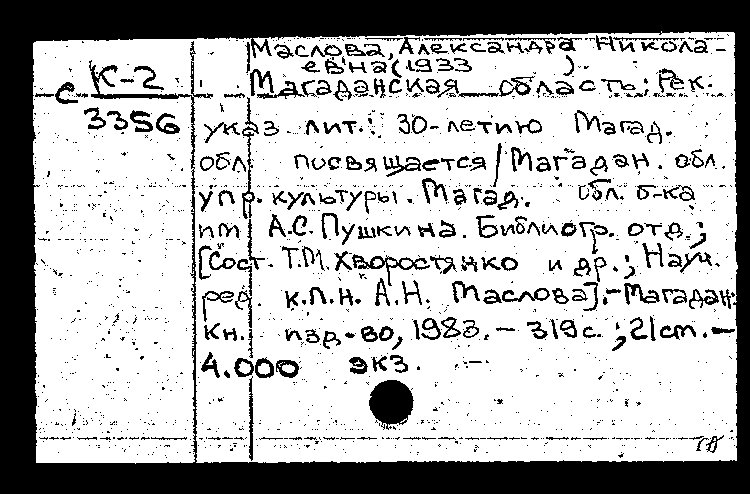 Маслова, Александра Никола-
евна (1933 ).
с К-2
3356
Магаданская область: Рек.
указ. лит.: 30-летию Магад.
обл. посвящается / Магадан. обл.
упр. культуры. Магад. обл. б-ка
им. А.С. Пушкина. Библиогр. отд.;
[Сост. Т.М. Хворостянко и др.; Науч.
ред. к.п.н. А.Н. Маслова]. - Магадан:
Кн. изд-во, 1983. - 319 с.; 21 cm. -
4.000 экз. -